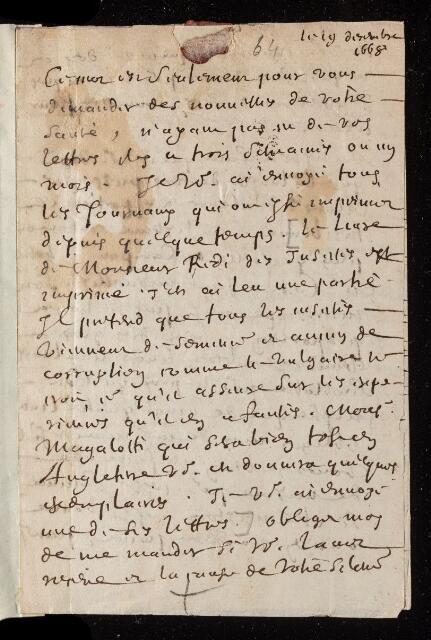 64 le 19 decembre
1668
Ce mot est seulement pour vous
demander des nouvelles de votre
santé, n'ayant pas eu de vos
lettres dès a trois semaines ou un
mois. Je V. ai envoyé tous
les Journaux qui ont esté imprimez
depuis quelque temps. le livre
de Monsieur Redi des Insectes est
imprimé. J'en ai leu une partie.
Il pretend que tous les insectes
viennent de semence et aucun de
corruption comme le vulgaire le
croit, ce qu'il asseure sur les expe-
riences qu'il en a faites. Mons.r
Magalotti qui sera bien tost en
Angleterre V. en donnera quelques
exemplaires. Je V. ai envoyé
une de ses lettres. obligez moy
de me mander si V. l'avez
receue et la de votre